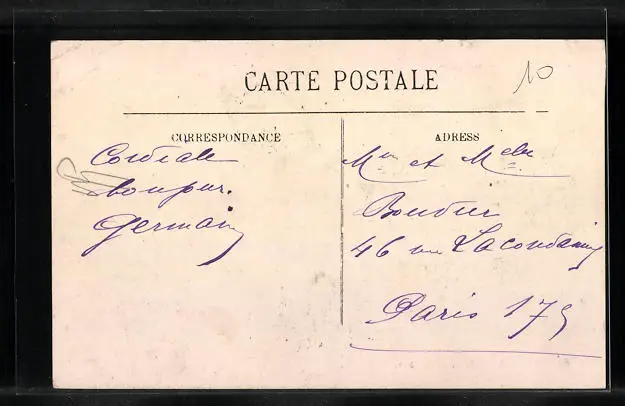 CARTE POSTALE
10
CORRESPONDANCE
Cordiale
bonjour.
Germain
ADRESS
Mr et Mme
46 rue Lacondamine
Paris 17e